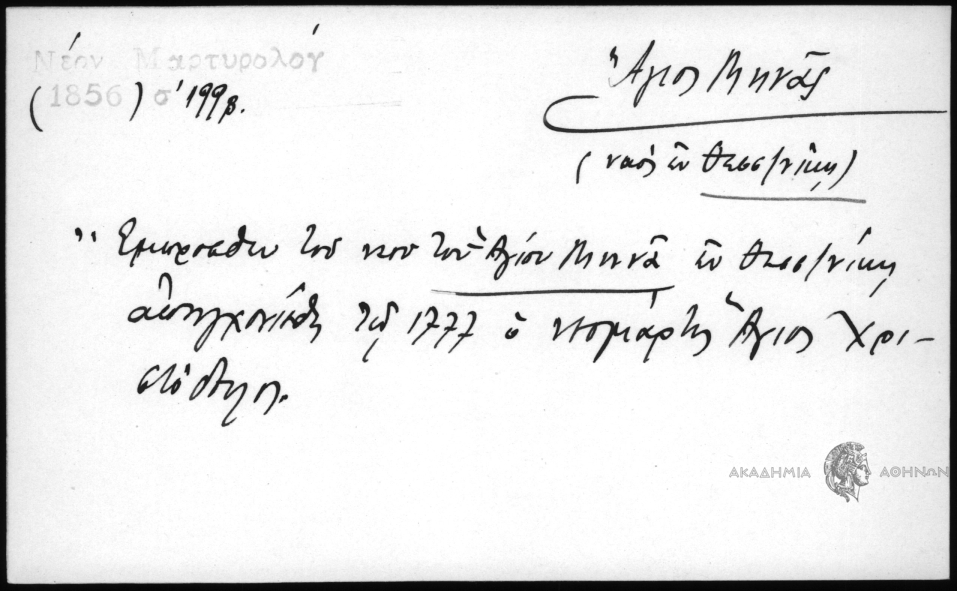 Νέον Μαρτυρολόγ
(1856) σ' 199β.
Ἅγιος Μηνᾶς
(ναὸς ἐν Θεσσ/νίκῃ)
"Εμπροσθεν τοῦ ναου τοῦ Ἁγίου Μηνᾶ ἐν Θεσσ/νίκῃ
ἀπηγχονίσθη τῷ 1777 ὁ νεομάρτης Ἅγιος Χρι-
στόδουλος.
ΑΚΑΔΗΜΙΑ ΑΘΗΝΩΝ